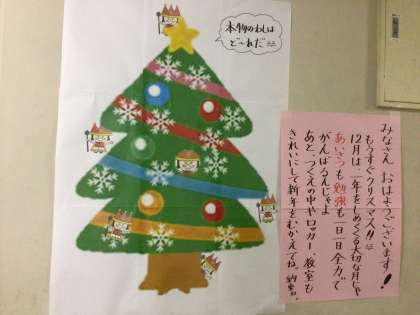 本物のわしは
どーれだ
みなさん おはようございます!
もうすぐクリスマス!!
12月は、一年をしめくくる大切な月じゃ
あいさつも勉強も一日一日全力で
がんばるんじゃよ
あと、つくえの中やロッカー、教室も
きれいにして新年をむかえてね。